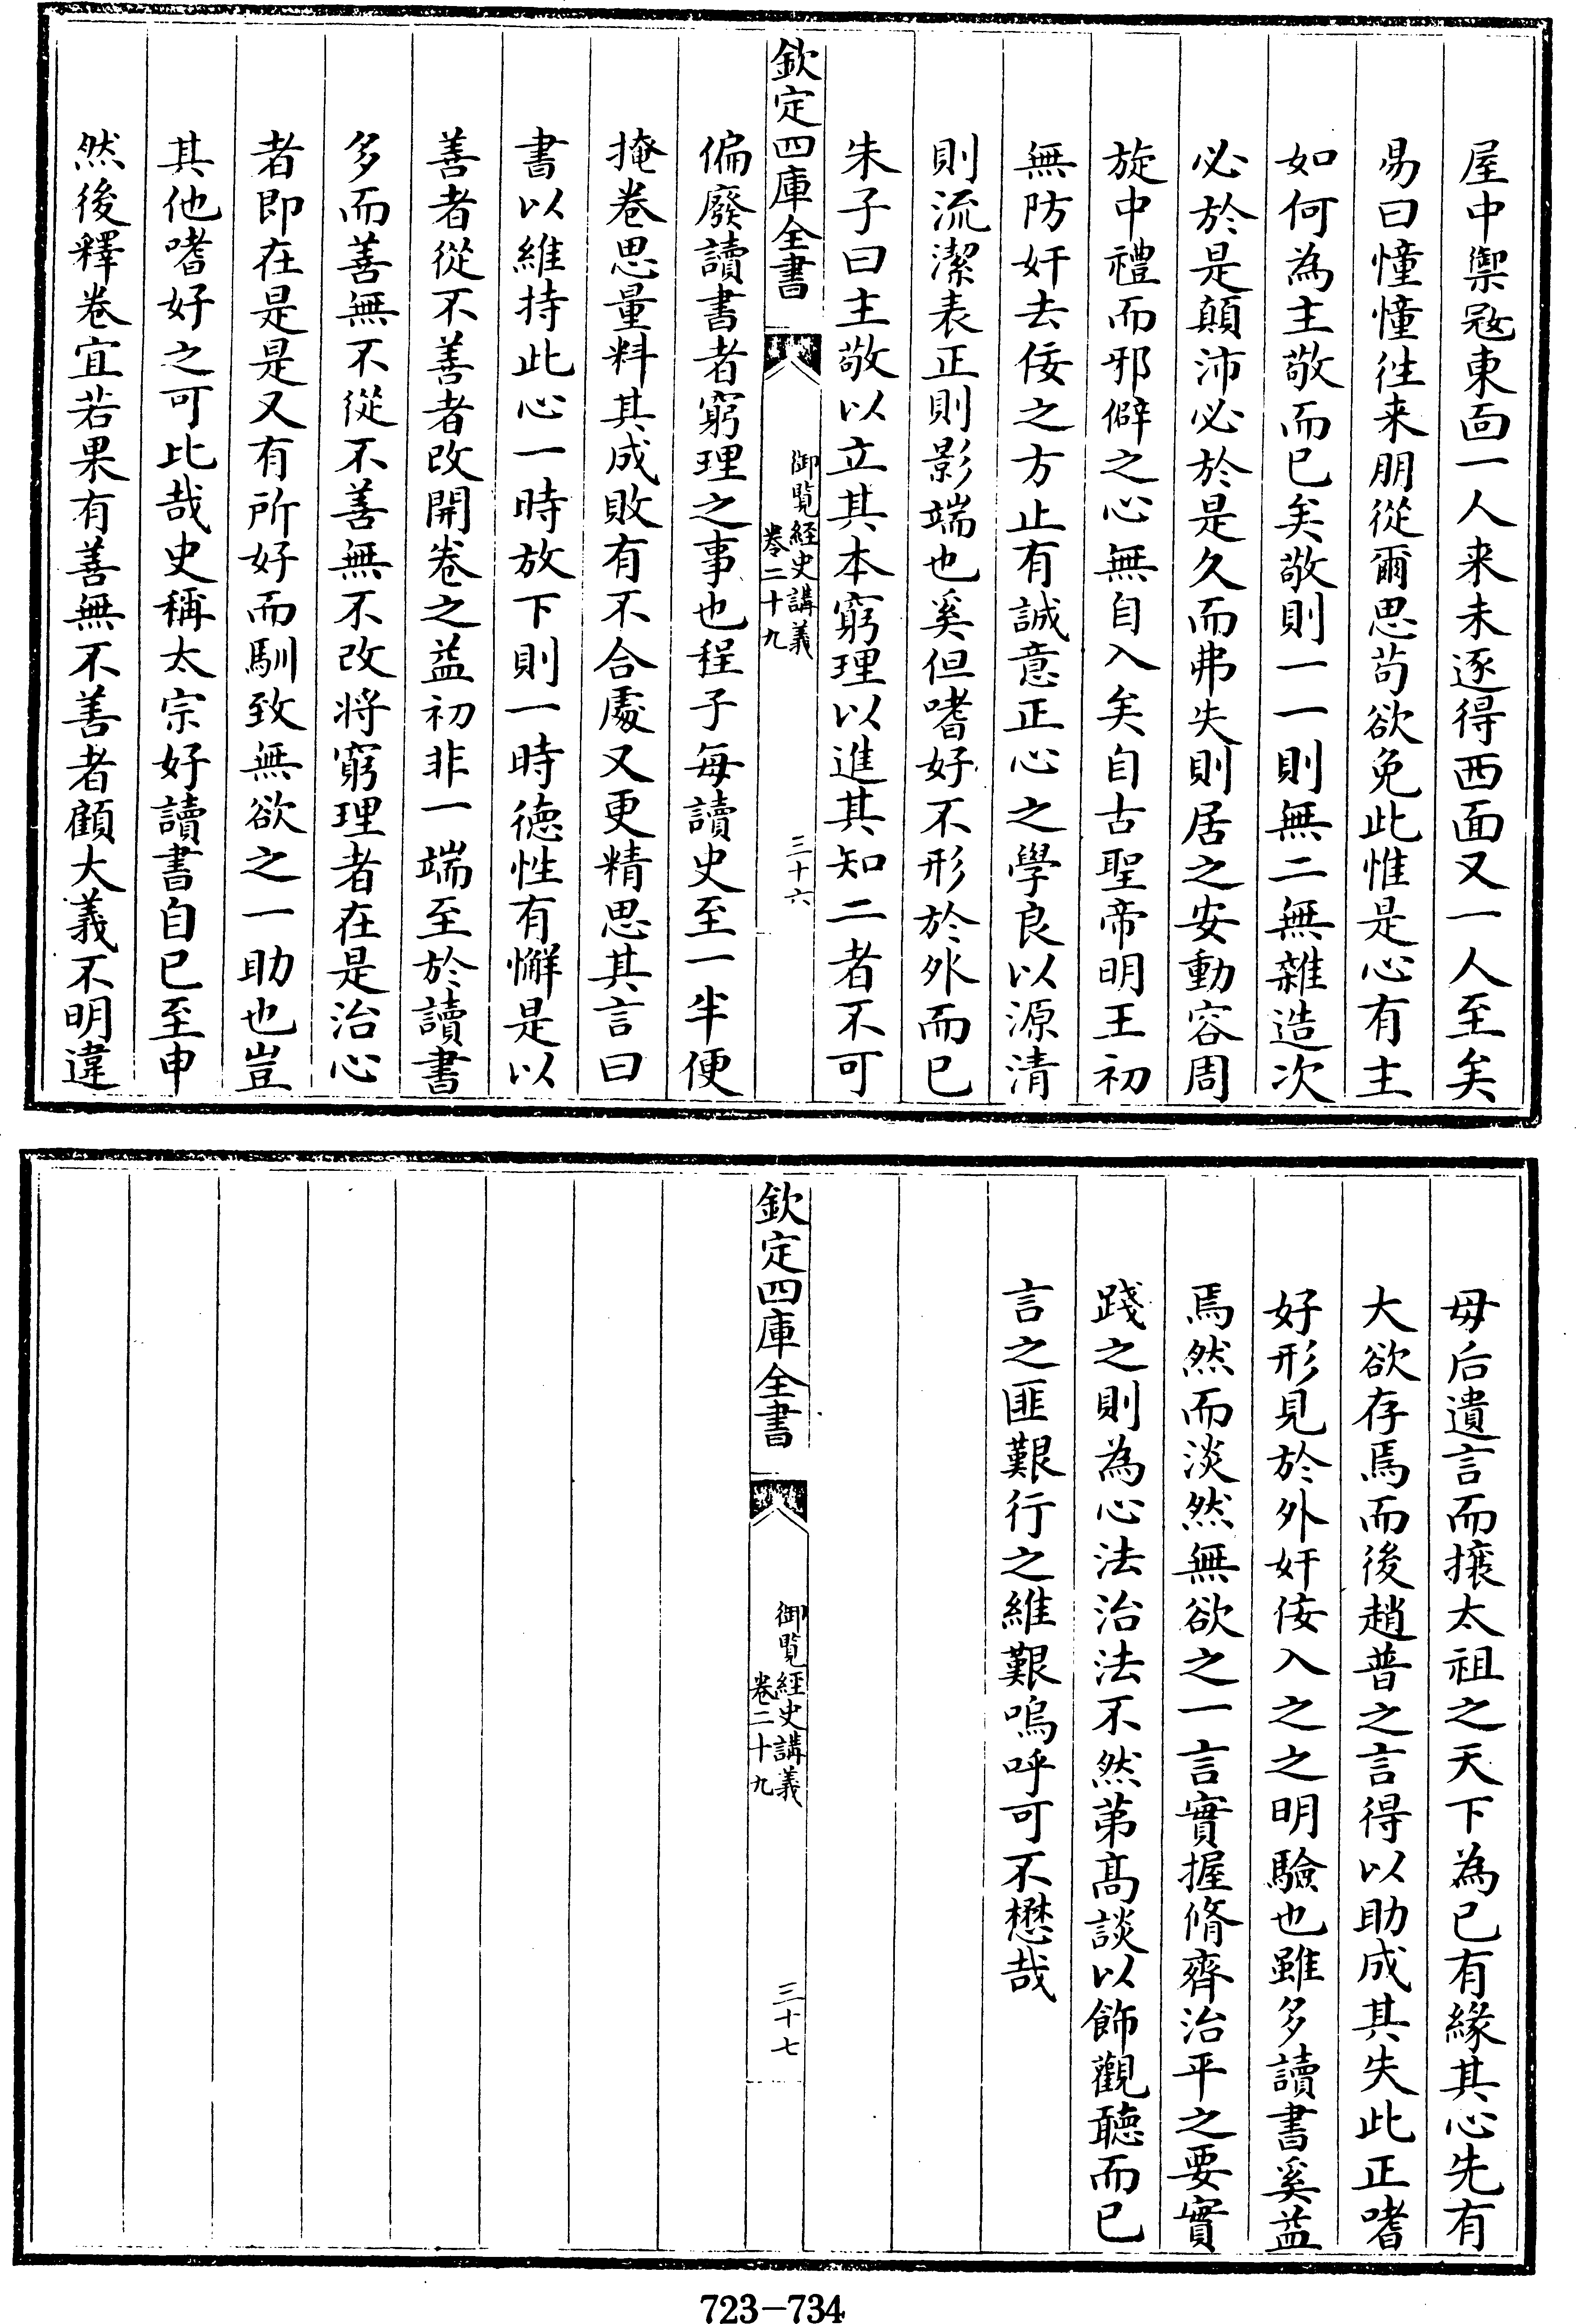 屋中禦冦東面一人来未逐得西面又一人至矣
易曰憧憧徃来朋從爾思苟欲免此惟是心有主
如何為主敬而已矣敬則一一則無二無雜造次
必於是顛沛必於是久而弗失則居之安動容周
旋中禮而邪僻之心無自入矣自古聖帝明王初
無防奸去佞之方止有誠意正心之學良以源清
則流潔表正則影端也奚但嗜好不形於外而已
朱子曰主敬以立其本窮理以進其知二者不可
欽定四庫全書
御覧經史講義
卷二十九
三十六
偏廢讀書者窮理之事也程子每讀史至一半便
掩卷思量料其成敗有不合處又更精思其言曰
書以維持此心一時放下則一時徳性有懈是以
善者從不善者改開卷之益初非一端至於讀書
多而善無不從不善無不改將窮理者在是治心
者即在是是又有所好而馴致無欲之一助也豈
其他嗜好之可比哉史稱太宗好讀書自巳至申
然後釋卷宜若果有善無不善者顧大義不明違
母后遺言而攘太祖之天下為已有緣其心先有
大欲存焉而後趙普之言得以助成其失此正嗜
好形見於外奸佞入之之明驗也雖多讀書奚益
焉然而淡然無欲之一言實握脩齊治平之要實
踐之則為心法治法不然第髙談以飾觀聽而已
言之匪艱行之維艱嗚呼可不懋哉
欽定四庫全書
御覧經史講義
卷二十九
三十七
723-734